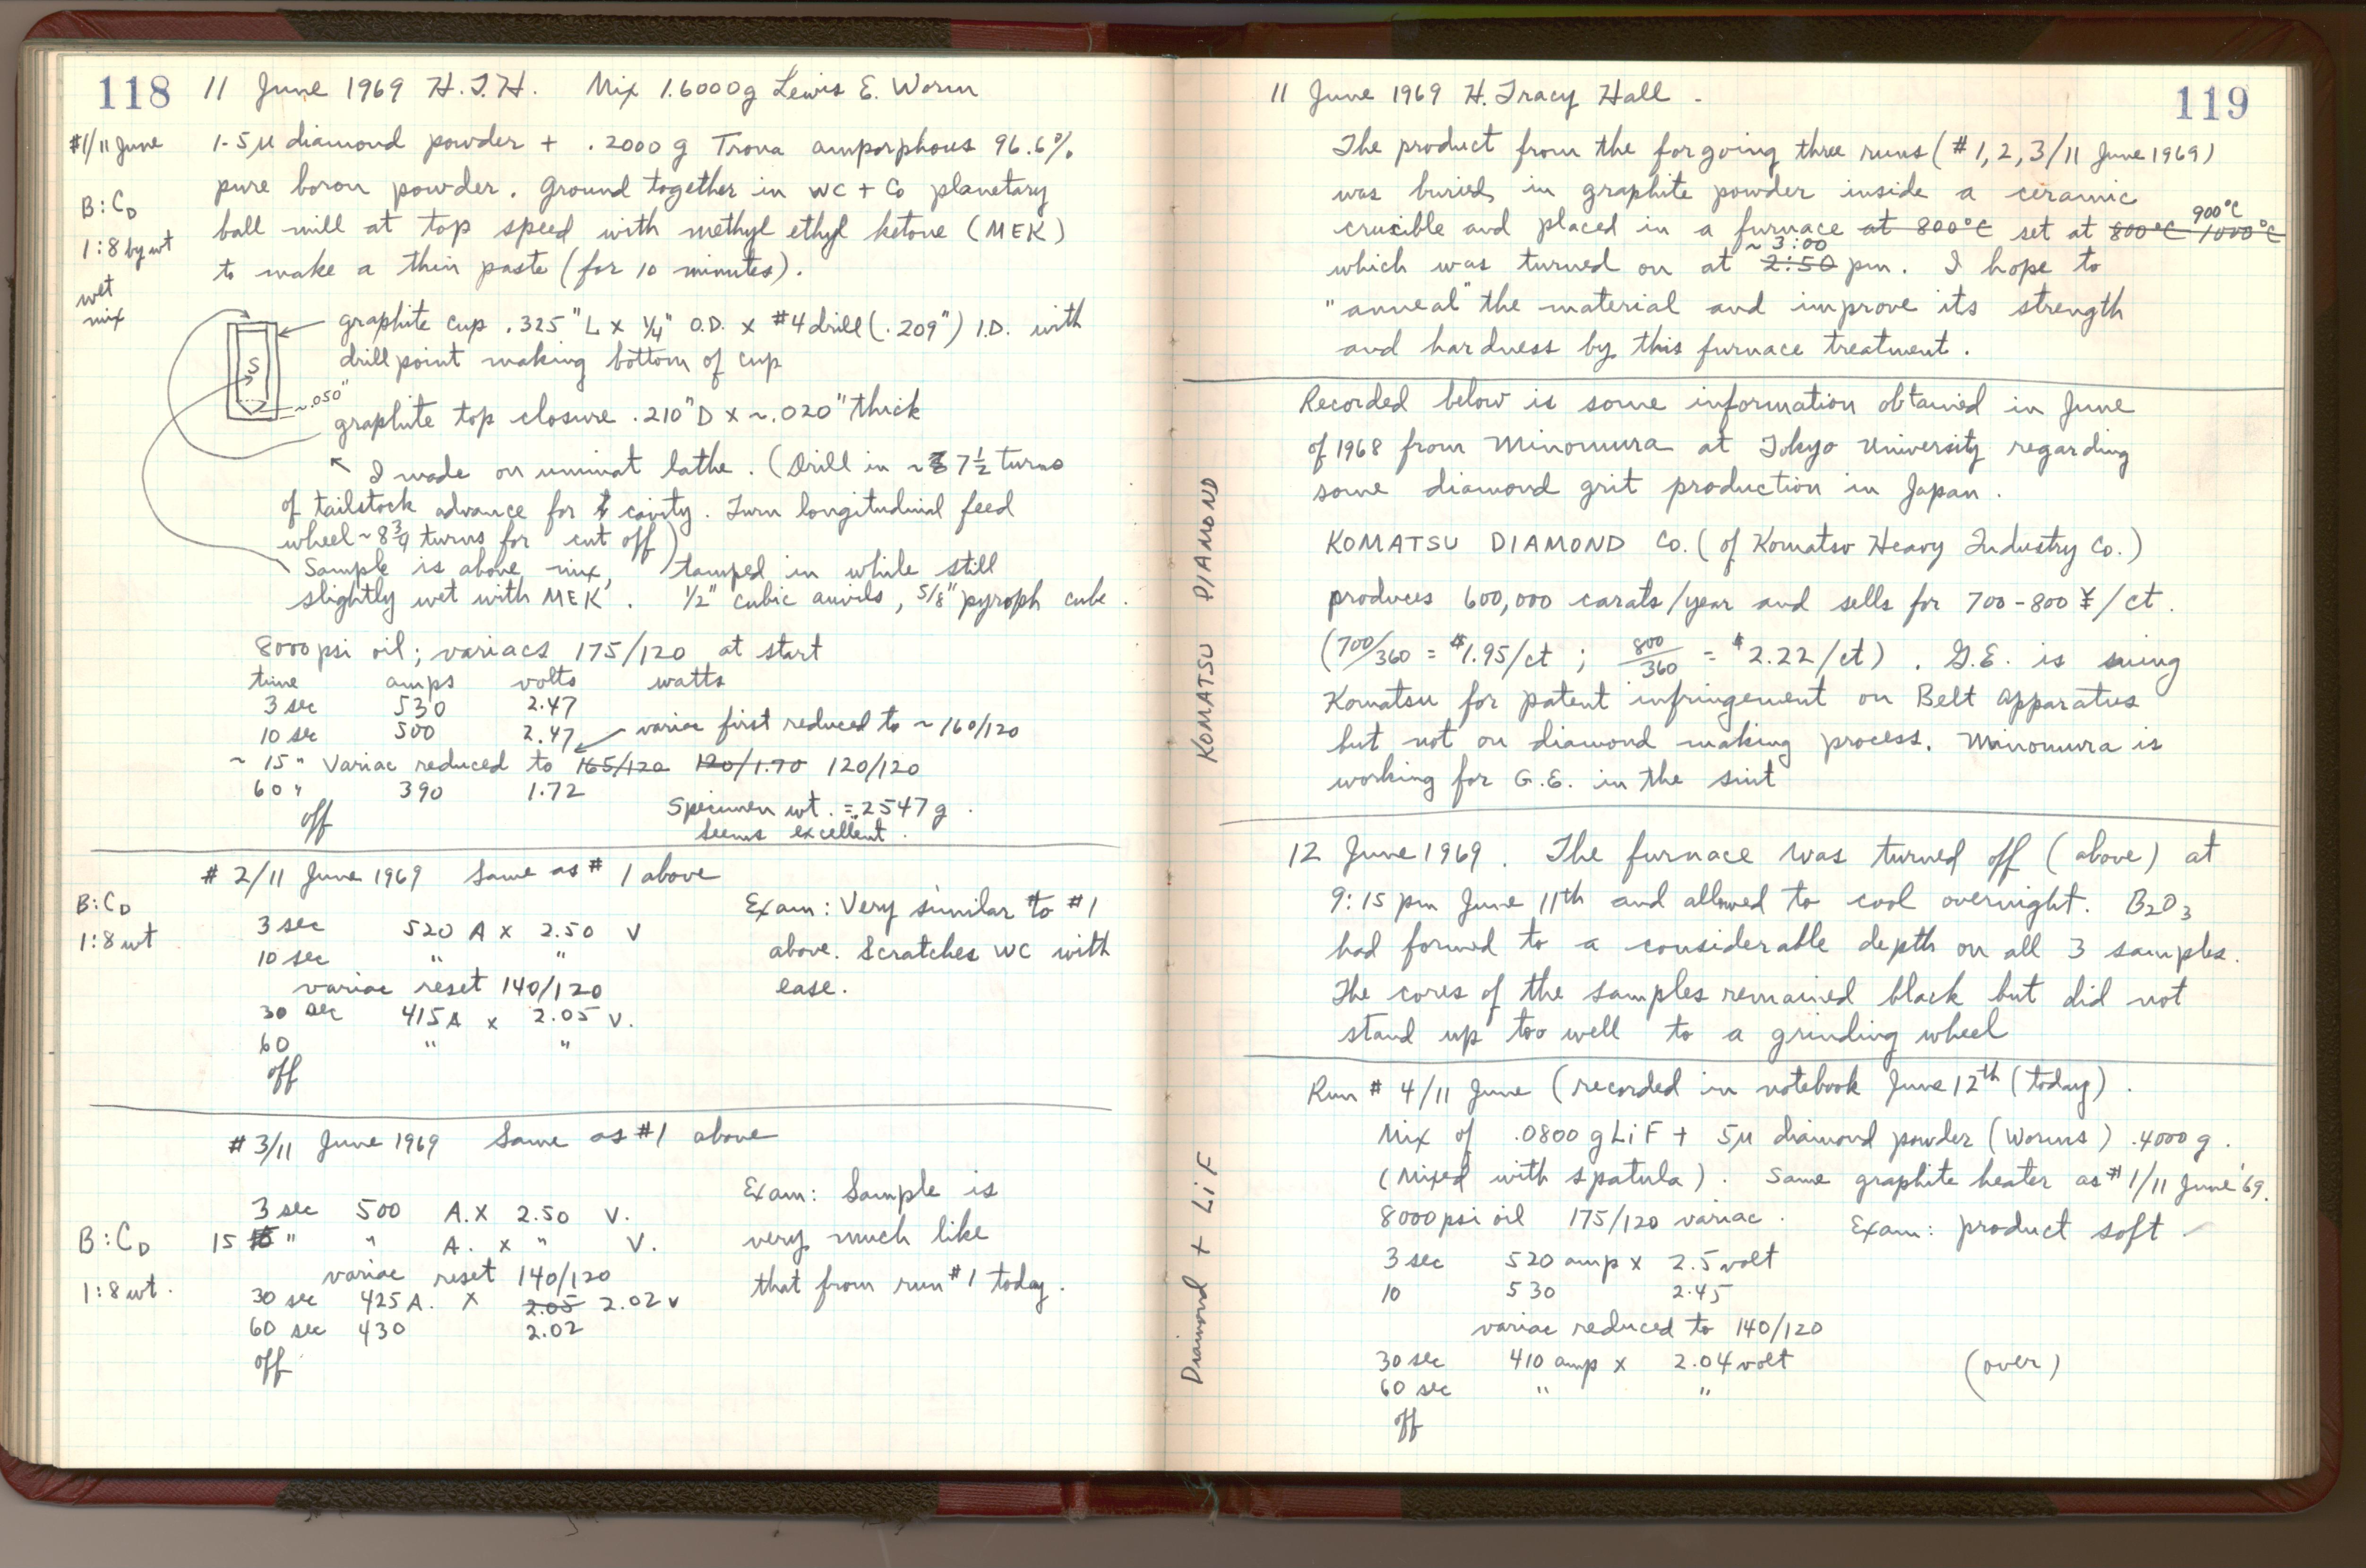 118 11 June 1969 H.T.H. Mix 1.6000g Lewis E. Worm
#1/11 June 1-5µ diamond powder + .2000 g Trona amporphous 96.6%
pure boron powder. Ground together in WC + Co planetary
B:CD
ball mill at top speed with methyl ethyl ketone (MEK)
1:8 by wt
to make a thin paste (for 10 minutes).
wet
mix
graphite cup .325" L x 1/4" O.D. x #4 drill (.209") I.D. with
drill point making bottom of cup
S
~.050"
graphite top closure .210" D x ~.020" thick
I made on unimat lathe. (Drill in ~8 7 1/2 turns
of tailstock advance for cavity. Turn longitudinal feed
wheel ~ 8 3/4 turns for cut off)
Sample is above mix, tamped in while still
slightly wet with MEK. 1/2" cubic anvils, 5/8" pyroph cube.
8000 psi oil; variacs 175/120 at start
time amps volts watts
3 sec 530 2.47
10 sec 500 2.47 variac first reduced to ~ 160/120
~ 15 " Variac reduced to 165/120 120/1.70 120/120
60 " 390 1.72
off
Specimen wt. = .2547 g.
seems excellent.
# 2/11 June 1969 Same as # 1 above
B:CD
1:8 wt
3 sec 520 A x 2.50 V
10 sec " "
variac reset 140/120
30 sec 415 A x 2.05 V.
60 " "
off
Exam: Very similar to #1
above. Scratches WC with
ease.
# 3/11 June 1969 Same as #1 above
B:CD
1:8 wt.
3 sec 500 A. x 2.50 V.
15 " " A. x " V.
variac reset 140/120
30 sec 425 A. x 2.05 2.02 V
60 sec 430 2.02
off
Exam: Sample is
very much like
that from run #1 today.
11 June 1969 H. Tracy Hall. 119
The product from the forgoing three runs (# 1, 2, 3/11 June 1969)
was buried in graphite powder inside a ceramic
crucible and placed in a furnace at 800°C set at 800°C 1000°C 900°C
which was turned on at 2:50 ~ 3:00 pm. I hope to
"anneal" the material and improve its strength
and hardness by this furnace treatment.
Recorded below is some information obtained in June
of 1968 from Minomura at Tokyo University regarding
some diamond grit production in Japan.
KOMATSU DIAMOND
KOMATSU DIAMOND CO. (of Komatsu Heavy Industry Co.)
produces 600,000 carats/year and sells for 700-800 ¥/ct.
(700/360 = $1.95/ct ; 800/360 = $2.22/ct). G.E. is suing
Komatsu for patent infringement on Belt Apparatus
but not on diamond making process. Minomura is
working for G.E. in the suit
12 June 1969. The furnace was turned off (above) at
9:15 pm June 11th and allowed to cool overnight. B2O3
had formed to a considerable depth on all 3 samples.
The cores of the samples remained black but did not
stand up too well to a grinding wheel
Diamond + LiF
Run # 4/11 June (recorded in notebook June 12th (today).
Mix of .0800 g LiF + 5µ diamond powder (Worms) .4000 g.
(Mixed with spatula). Same graphite heater as #1/11 June '69.
8000 psi oil 175/120 variac. Exam: product soft
3 sec 520 amp x 2.5 volt
10 530 2.45
variac reduced to 140/120
30 sec 410 amp x 2.04 volt
60 sec " "
off
(over)